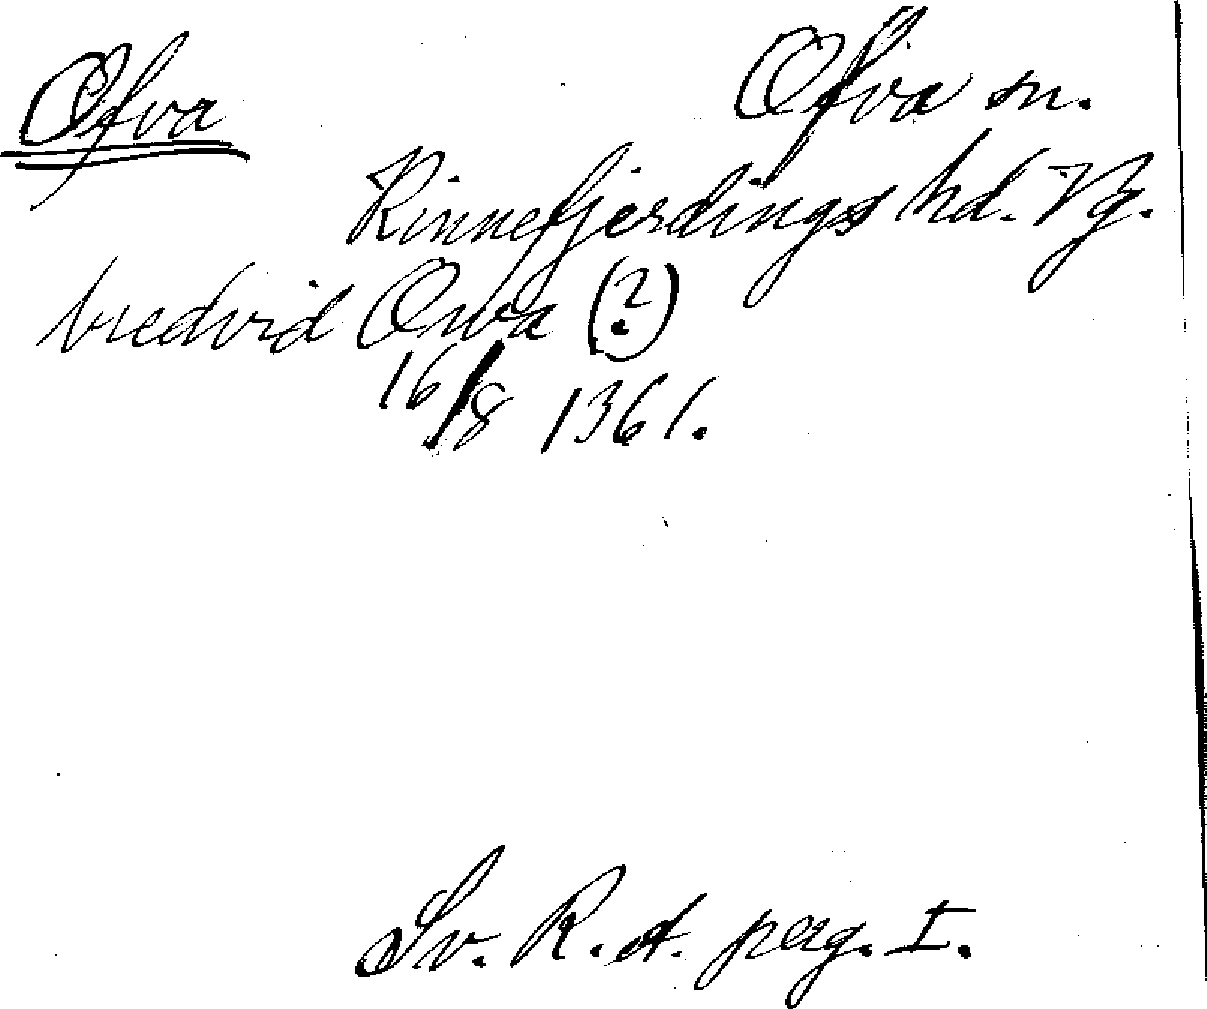 Ofva
Ofva sn.
Kinnefjerdings hd. Vg.
bredvid Orwa (?)
16/8 1361.
Sv. R. A. perg. I.